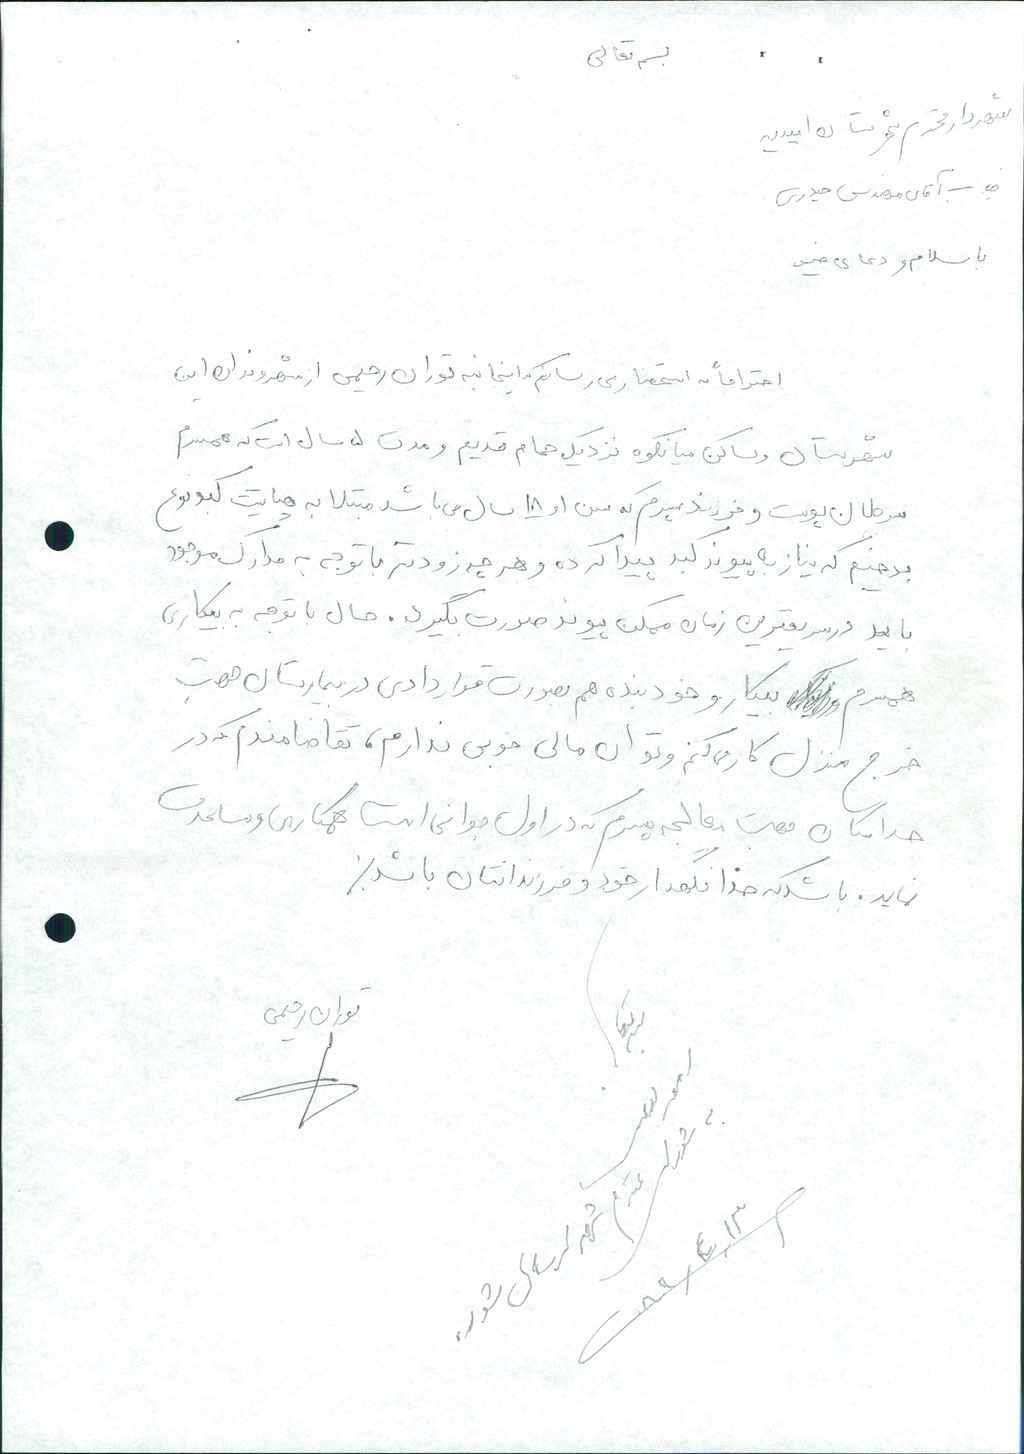 بسم تعالی
شهردار محترم شهرستان امیدیه
جناب آقای مهندس حیدری
با سلام و دعای خیر
احتراماً به استحضار می رسانم که اینجانبه توران رحیمی از شهروندان این
شهرستان و ساکن میانکوه نزدیک حمام قدیم و مدت ۵ سال است که همسرم
سرطان پوست و فرزند پسرم که سن او ۱۸ سال می باشد مبتلا به هپاتیت کبد نوع
بدخیم که نیاز به پیوند کبد پیدا کرده و هر چه زودتر با توجه به مدارک موجود
باید در سریعترین زمان ممکن پیوند صورت بگیرد. حال با توجه به بیکاری
همسرم بیکار و خود بنده هم بصورت قراردادی در بیمارستان جهت
خرج منزل کار می کنم و توان مالی خوبی ندارم، تقاضامندم که در
حد امکان جهت معالجه پسرم که در اول جوانی است همکاری و مساعدت
نماید. باشد که خدا نگهدار خود و فرزندانتان باشد٪
توران رحیمی
به شورای محترم شهر ارسال شود.
۸۹/۴/۱۳